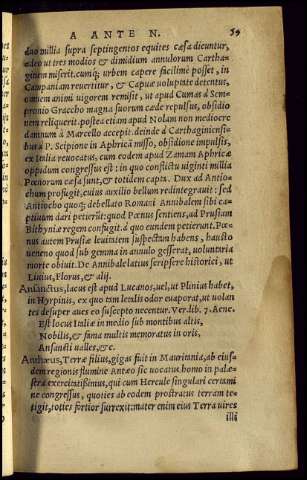 A ANTE N. 39
duo millia supra septingentos equites cæsa dicuntur,
adeo ut tres modios & dimidium annulorum Cartha-
ginem miserit. cumq; urbem capere facilimè posset, in
Campaniam reuertitur, & Capuæ uoluptate detentus,
omnem animi uigorem remisit, ut apud Cumas à Sem-
pronio Graccho magna suorum cæde repulsus, obsidio
nem reliquerit. postea etiam apud Nolam non mediocre
damnum à Marcello accepit. deinde à Carthaginensi-
bus à P. Scipione in Aphrica misso, obsidione impulsis,
ex Italia reuocatus, cum eodem apud Zamam Aphricæ
oppidum congressus est: in quo conflictu uiginti millia
Pœnorum cæsa sunt, & totidem capta. Dux ad Antio-
chum profugit, cuius auxilio bellum redintegrauit: sed
Antiocho quoq; debellato Romani Annibalem sibi ca-
ptiuum dari petierũt: quod Pœnus sentiens, ad Prusiam
Bithyniæ regem confugit. à quo eundem petierunt. Pœ-
nus autem Prusiæ leuitatem suspectam habens, hausto
ueneno quod sub gemma in annulo gesserat, uoluntaria
morte obiuit. De Annibale latius scripsere historici, ut
Liuius, Florus, & alij.
Ansanctus, lacus est apud Lucanos, uel, ut Plinius habet,
in Hyrpinis, ex quo tam lethalis odor euaporat, ut uolan
tes desuper aues eo suscepto necentur. Ver. lib. 7. Aene.
Est locus Italiæ in medio sub montibus altis,
Nobilis, & fama multis memoratus in oris,
Ansancti ualles, &c.
Anthæus, Terræ filius, gigas fuit in Mauritania, ab eius-
dem regionis flumine Antæo sic uocatus. homo in palæ-
stra exercitatissimus, qui cum Hercule singulari certami
ne congressus, quoties ab eodem prostratus terram te-
tigit, toties fortior surrexit: mater enim eius Terra uires
illi